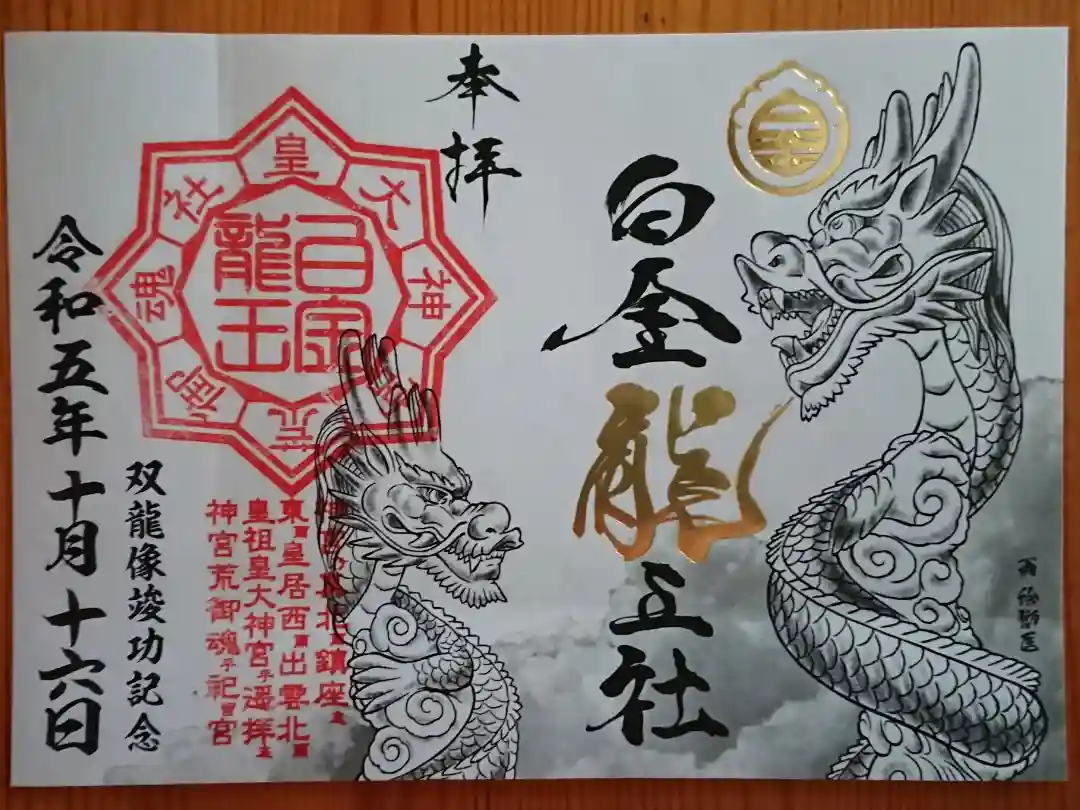 白金龍王社
奉拝
皇大神宮荒御魂社
白金龍王
東皇居西出雲北
皇祖皇大神宮ヲ遥拝
神宮荒御魂ヲ祀宮
双龍像竣功記念
令和五年十月十六日